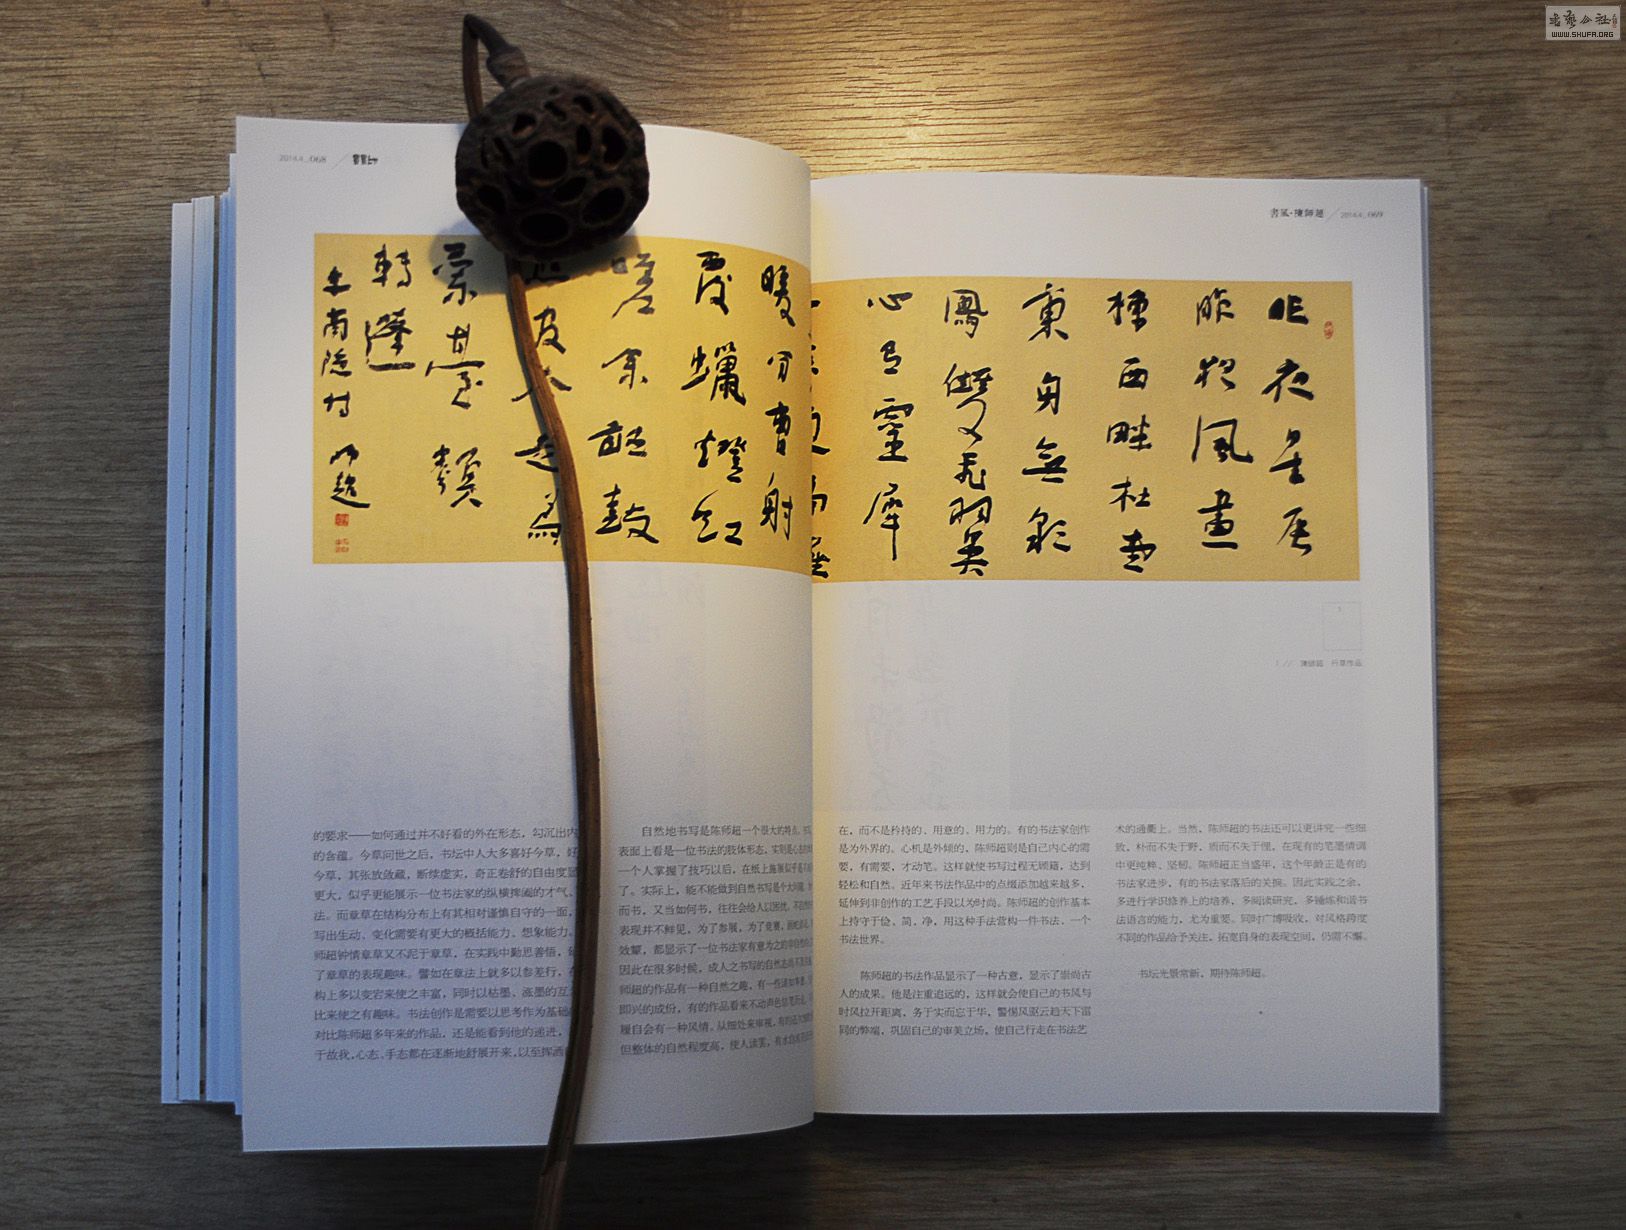 WWW.SHUFA.ORG
2014.4_068
書風·陳師超 / 2014.4_069
昨夜星辰
昨夜風畫
樓西畔桂堂
東身無彩
鳳雙飛羽翼
心有靈犀
暖分曹射
覆蠟燈紅
嗟余聽鼓
蘭臺類
轉蓬
师超
1 // 陳師超 行草作品
的要求——如何通过并不好看的外在形态，勾沉出内
的含蕴。今草问世之后，书坛中人大多喜好今草，好
今草，其张放敛藏，断续虚实，奇正卷舒的自由度
更大，似乎更能展示一位书法家的纵横捭阖的才气、
法。而章草在结构分布上有其相对谨慎自守的一面，
写出生动、变化需要有更大的概括能力、想象能力。
师超钟情章草又不泥于章草，在实践中勤思善悟，
了章草的表现趣味。譬如在章法上就多以参差行，在
构上多以变宕来使之丰富，同时以枯墨、涨墨的互
比来使之有趣味。书法创作是需要以思考作为基础
对比陈师超多年来的作品，还是能看到他的递进，
于故我，心态、手态都在逐渐地舒展开来，以至挥洒
自然地书写是陈师超一个很大的特点。
表面上看是一位书法的肢体形态，实则是心态的
一个人掌握了技巧以后，在纸上施展似乎是
了。实际上，能不能做到自然书写是个大问题，
而书，又当如何书，往往会给人以困扰，
表现并不鲜见，为了参展，为了竞赛，
效颦，都显示了一位书法家有意为之的非自然
因此在很多时候，成人之书写的自然
师超的作品有一种自然之趣，有一些
即兴的成份，有的作品看来不动声色
履自会有一种风情。从细处来审视，
但整体的自然程度高，使人读罢，
在，而不是矜持的、用意的、用力的。有的书法家创作
是为外界的。心机是外倾的，陈师超则是自己内心的需
要，有需要，才动笔。这样就使书写过程无顾籍，达到
轻松和自然。近年来书法作品中的点缀添加越来越多，
延伸到非创作的工艺手段以为时尚。陈师超的创作基本
上持守于俭、简、净，用这种手法营构一件书法、一个
书法世界。
陈师超的书法作品显示了一种古意，显示了崇尚古
人的成果。他是注重追远的，这样就会使自己的书风与
时风拉开距离，务于实而忘于华，警惕风驱云趋天下雷
同的弊端，巩固自己的审美立场，使自己行走在书法艺
术的通衢上。当然，陈师超的书法还可以更讲究一些细
致，朴而不失于野，质而不失于俚，在现有的笔墨情调
中更纯粹、坚韧。陈师超正当盛年，这个年龄正是有的
书法家进步，有的书法家落后的关捩。因此实践之余，
多进行学识修养上的培养，多阅读研究，多锤炼和谐书
法语言的能力，尤为重要。同时广博吸收，对风格跨度
不同的作品给予关注，拓宽自身的表现空间，仍需不懈。
书坛光景常新，期待陈师超。